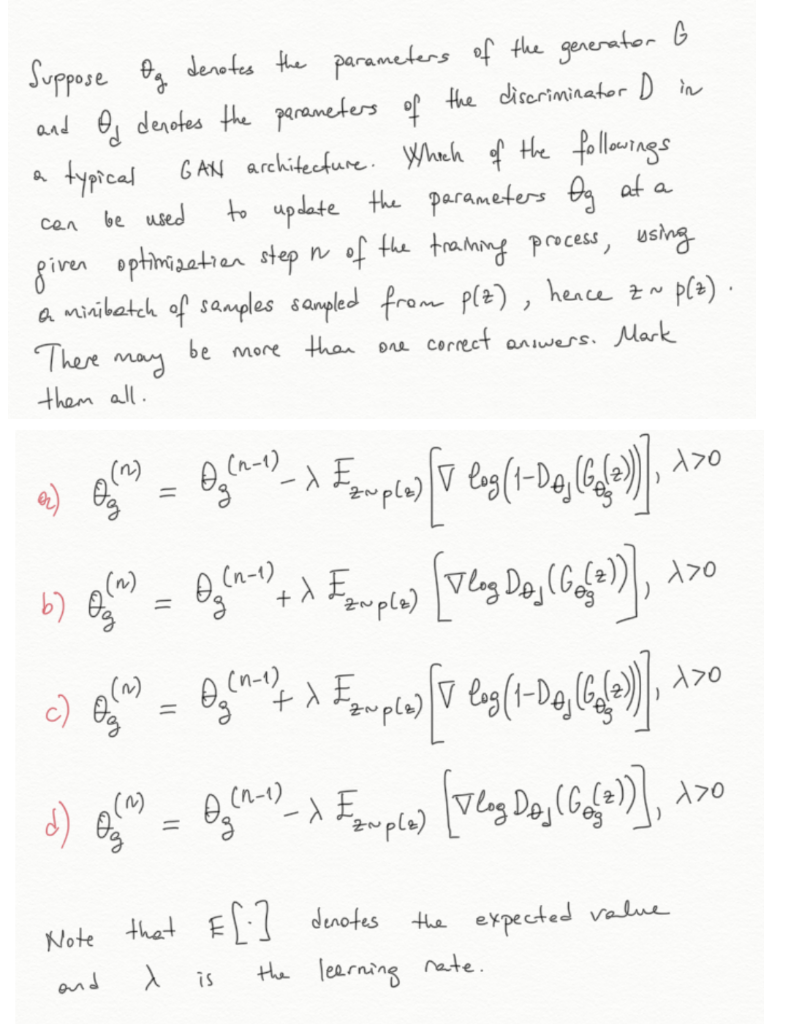 Suppose θg denotes the parameters of the generator G
and θd denotes the parameters of the discriminator D in
a typical GAN architecture. Which of the followings
can be used to update the parameters θg at a
given optimization step n of the training process, using
a minibatch of samples sampled from p(z), hence z ~ p(z).
There may be more than one correct answers. Mark
them all.
a) θg^(n) = θg^(n-1) - λ E_z~p(z) [∇ log(1-Dθd(Gθg(z)))], λ>0
b) θg^(n) = θg^(n-1) + λ E_z~p(z) [∇ log Dθd(Gθg(z))], λ>0
c) θg^(n) = θg^(n-1) + λ E_z~p(z) [∇ log(1-Dθd(Gθg(z)))], λ>0
d) θg^(n) = θg^(n-1) - λ E_z~p(z) [∇ log Dθd(Gθg(z))], λ>0
Note that E[·] denotes the expected value
and λ is the learning rate.